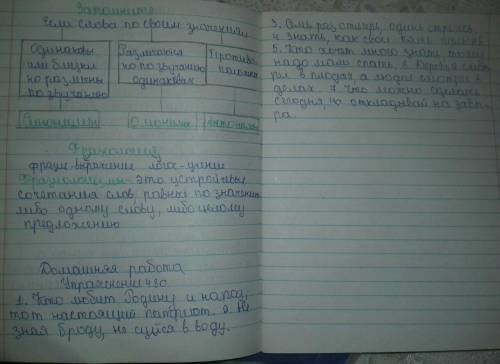 Запомните
Если слова по своим значениям
Одинаковы
или близки
но различны
по звучанию
Различаются
но по звучанию
одинаковы
Противо
положны
Синонимы
Омонимы
Антонимы
Фразеология
фразис-выражение логос-учение
Фразеологизмы- это устойчивые
сочетания слов, равные по значению
либо одному слову, либо целому
предложению
Домашняя работа
Упражнение 480
1. Кто любит Родину и народ,
тот настоящий патриот. 2. Не
зная броду, не суйся в воду.
3. Семь раз отмерь, один отрежь.
4. Знать, как свои пять пальцев.
5. Кто хочет много знать, тому
надо мало спать. 6. Деревья смот
ри в плодах, а людей смотри в
делах. 7. Что можно сделать
сегодня, не откладывай на завт-
ра.